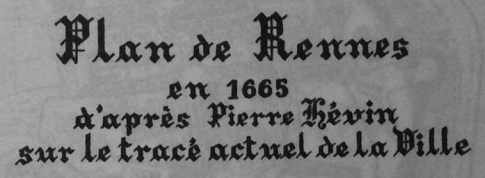 Plan de Rennes
en 1665
d'après Pierre Hévin
sur le tracé actuel de la Ville